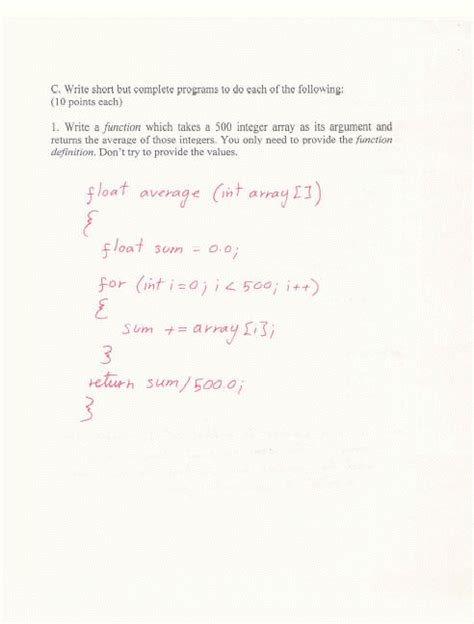 C. Write short but complete programs to do each of the following:
(10 points each)
1. Write a function which takes a 500 integer array as its argument and
returns the average of those integers. You only need to provide the function
definition. Don't try to provide the values.
float average (int array[])
{
float sum = 0.0;
for (int i=0; i < 500; i++)
{
sum += array[i];
}
return sum/500.0;
}